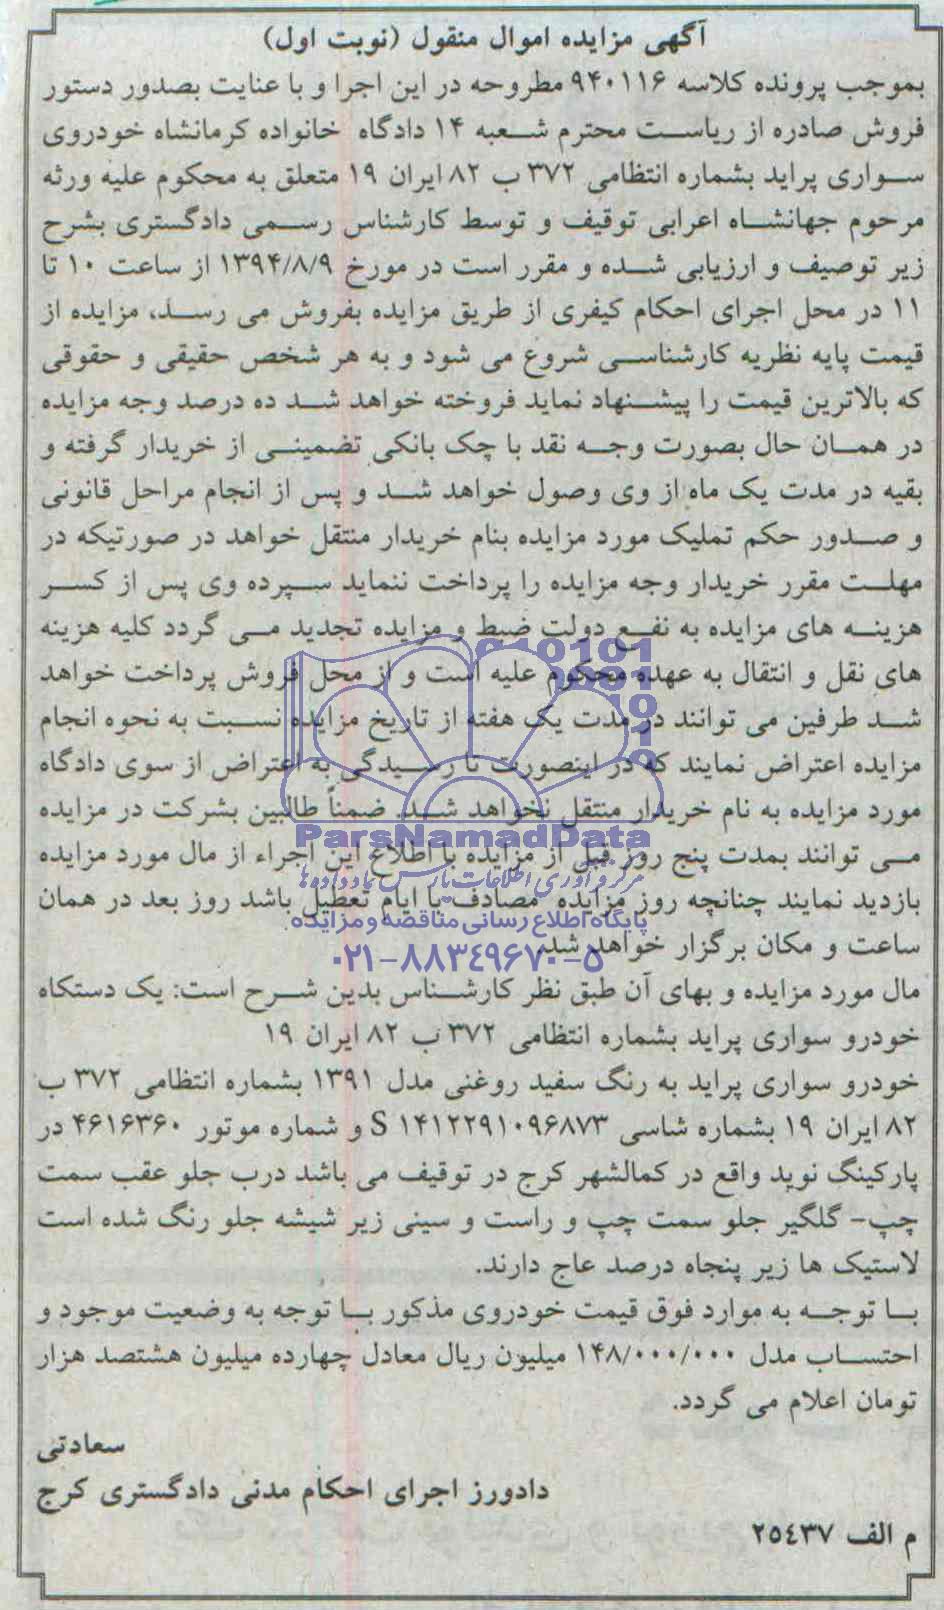 آگهی مزایده اموال منقول (نوبت اول)
بموجب پرونده کلاسه ۹۴۰۱۱۶ مطروحه در این اجرا و با عنایت بصدور دستور
فروش صادره از ریاست محترم شعبه ۱۴ دادگاه خانواده کرمانشاه خودروی
سواری پراید بشماره انتظامی ۳۷۲ ب ۸۲ ایران ۱۹ متعلق به محکوم علیه ورثه
مرحوم جهانشاه اعرابی توقیف و توسط کارشناس رسمی دادگستری بشرح
زیر توصیف و ارزیابی شده و مقرر است در مورخ ۱۳۹۴/۸/۹ از ساعت ۱۰ تا
۱۱ در محل اجرای احکام کیفری از طریق مزایده بفروش می رسد، مزایده از
قیمت پایه نظریه کارشناسی شروع می شود و به هر شخص حقیقی و حقوقی
که بالاترین قیمت را پیشنهاد نماید فروخته خواهد شد ده درصد وجه مزایده
در همان حال بصورت وجه نقد با چک بانکی تضمینی از خریدار گرفته و
بقیه در مدت یک ماه از وی وصول خواهد شد و پس از انجام مراحل قانونی
و صدور حکم تملیک مورد مزایده بنام خریدار منتقل خواهد در صورتیکه در
مهلت مقرر خریدار وجه مزایده را پرداخت ننماید سپرده وی پس از کسر
هزینه های مزایده به نفع دولت ضبط و مزایده تجدید می گردد کلیه هزینه
های نقل و انتقال به عهده محکوم علیه است و از محل فروش پرداخت خواهد
شد طرفین می توانند در مدت یک هفته از تاریخ مزایده نسبت به نحوه انجام
مزایده اعتراض نمایند که در اینصورت تا رسیدگی به اعتراض از سوی دادگاه
مورد مزایده به نام خریدار منتقل نخواهد شد. ضمناً طالبین بشرکت در مزایده
ParsNamadData
می توانند بمدت پنج روز قبل از مزایده با اطلاع این اجراء از مال مورد مزایده
مرکز فرآوری اطلاعات پارس نماد داده ها
بازدید نمایند چنانچه روز مزایده مصادف با ایام تعطیل باشد روز بعد در همان
پایگاه اطلاع رسانی مناقصه و مزایده
ساعت و مکان برگزار خواهد شد.
۰۲۱-۸۸۳۴۹۶۷۰-۵
مال مورد مزایده و بهای آن طبق نظر کارشناس بدین شرح است: یک دستکاه
خودرو سواری پراید بشماره انتظامی ۳۷۲ ب ۸۲ ایران ۱۹
خودرو سواری پراید به رنگ سفید روغنی مدل ۱۳۹۱ بشماره انتظامی ۳۷۲ ب
۸۲ ایران ۱۹ بشماره شاسی S ۱۴۱۲۲۹۱۰۹۶۸۷۳ و شماره موتور ۴۶۱۶۳۶۰ در
پارکینگ نوید واقع در کمالشهر کرج در توقیف می باشد درب جلو عقب سمت
چپ- گلگیر جلو سمت چپ و راست و سینی زیر شیشه جلو رنگ شده است
لاستیک ها زیر پنجاه درصد عاج دارند.
با توجه به موارد فوق قیمت خودروی مذکور با توجه به وضعیت موجود و
احتساب مدل ۱۴۸/۰۰۰/۰۰۰ میلیون ریال معادل چهارده میلیون هشتصد هزار
تومان اعلام می گردد.
سعادتی
دادورز اجرای احکام مدنی دادگستری کرج
م الف ۲۵۴۳۷